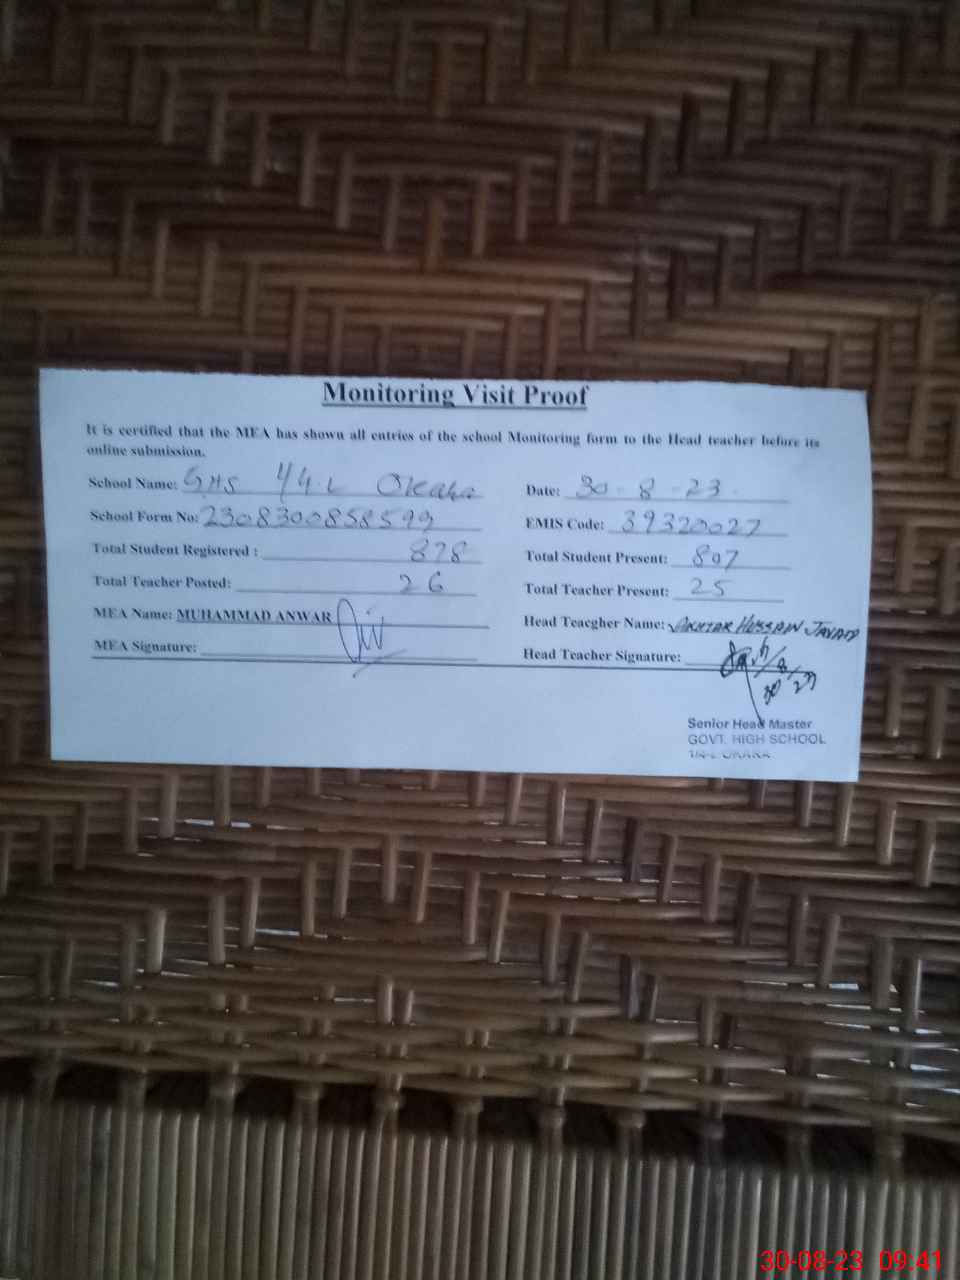 Monitoring Visit Proof
It is certified that the MEA has shown all entries of the school Monitoring form to the Head teacher before its
online submission.
School Name: GHS 44.L Okara
Date: 30-8-23.
School Form No: 2308300858599
EMIS Code: 39320027
Total Student Registered : 878
Total Student Present: 807
Total Teacher Posted: 26
Total Teacher Present: 25
MEA Name: MUHAMMAD ANWAR
Head Teacgher Name: AKHTAR HUSSAIN JAVAID
MEA Signature:
Head Teacher Signature:
30/8/23
Senior Head Master
GOVT. HIGH SCHOOL
OKARA
30-08-23 09:41